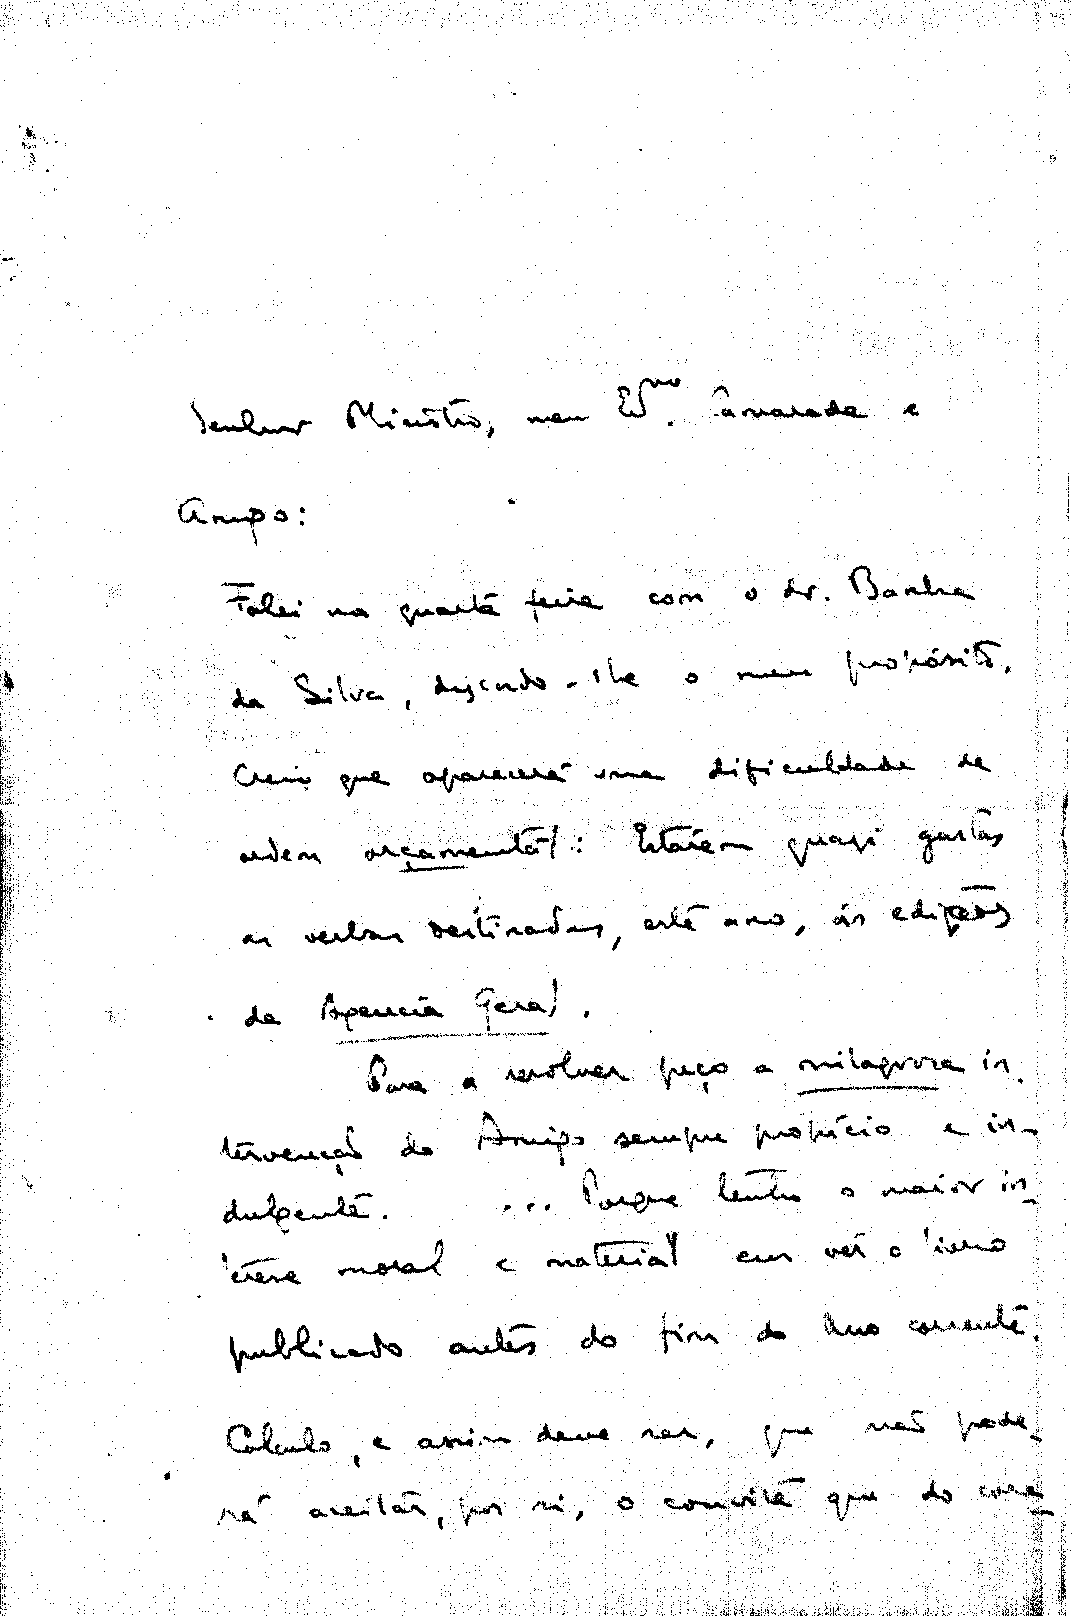 Senhor Ministro, meu Exmo. Camarada e
Amigo:
Falei na quarta feira com o dr. Banha
da Silva, dizendo-lhe o meu propósito.
Creio que aparecerá uma dificuldade de
ordem orçamental: Estarem quasi gastas
as verbas destinadas, este ano, ás edições
da Agencia Geral.
Para a resolver peço a milagrosa in-
tervenção do Amigo sempre propicio e in-
dulgente. ... Porque tenho o maior in-
terese moral e material em ver o livro
publicado antes do fim do Ano corrente.
Calculo, e assim deve ser, que não pode-
rá aceitar, por si, o convite que do cora-